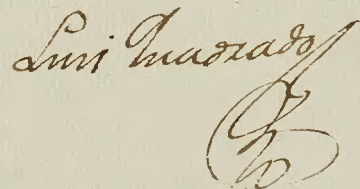 Luis Quadrado